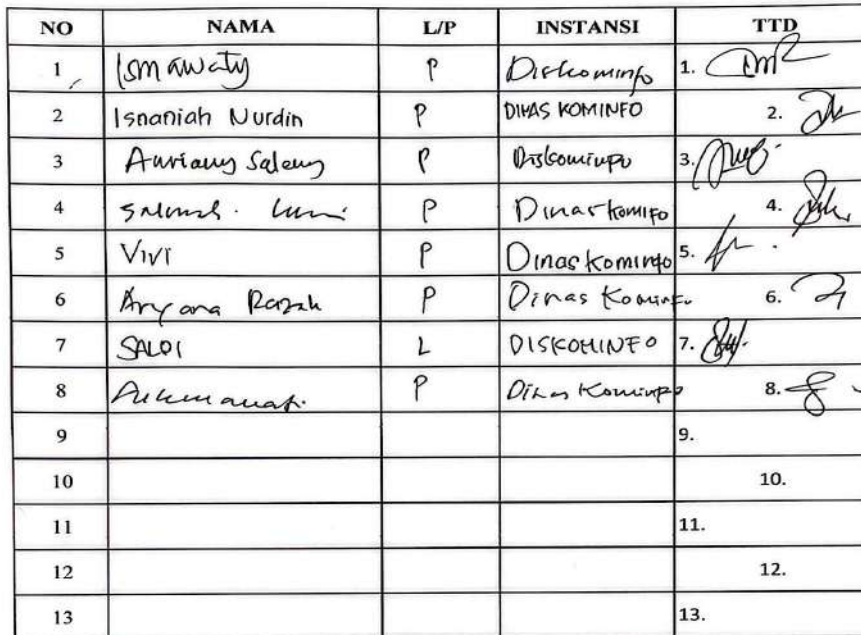 NO NAMA L/P INSTANSI TTD
1 Ismawaty P Diskominfo 1.
2 Isnaniah Nurdin P DINAS KOMINFO 2.
3 Saleng P Diskominfo 3.
4 P Dinas Komifo 4.
5 Vivi P Dinas Kominfo 5.
6 Aryana Razak P Dinas Kominfo 6.
7 SALDI L DISKOMINFO 7.
8 P Dinas Kominfo 8.
9 9.
10 10.
11 11.
12 12.
13 13.